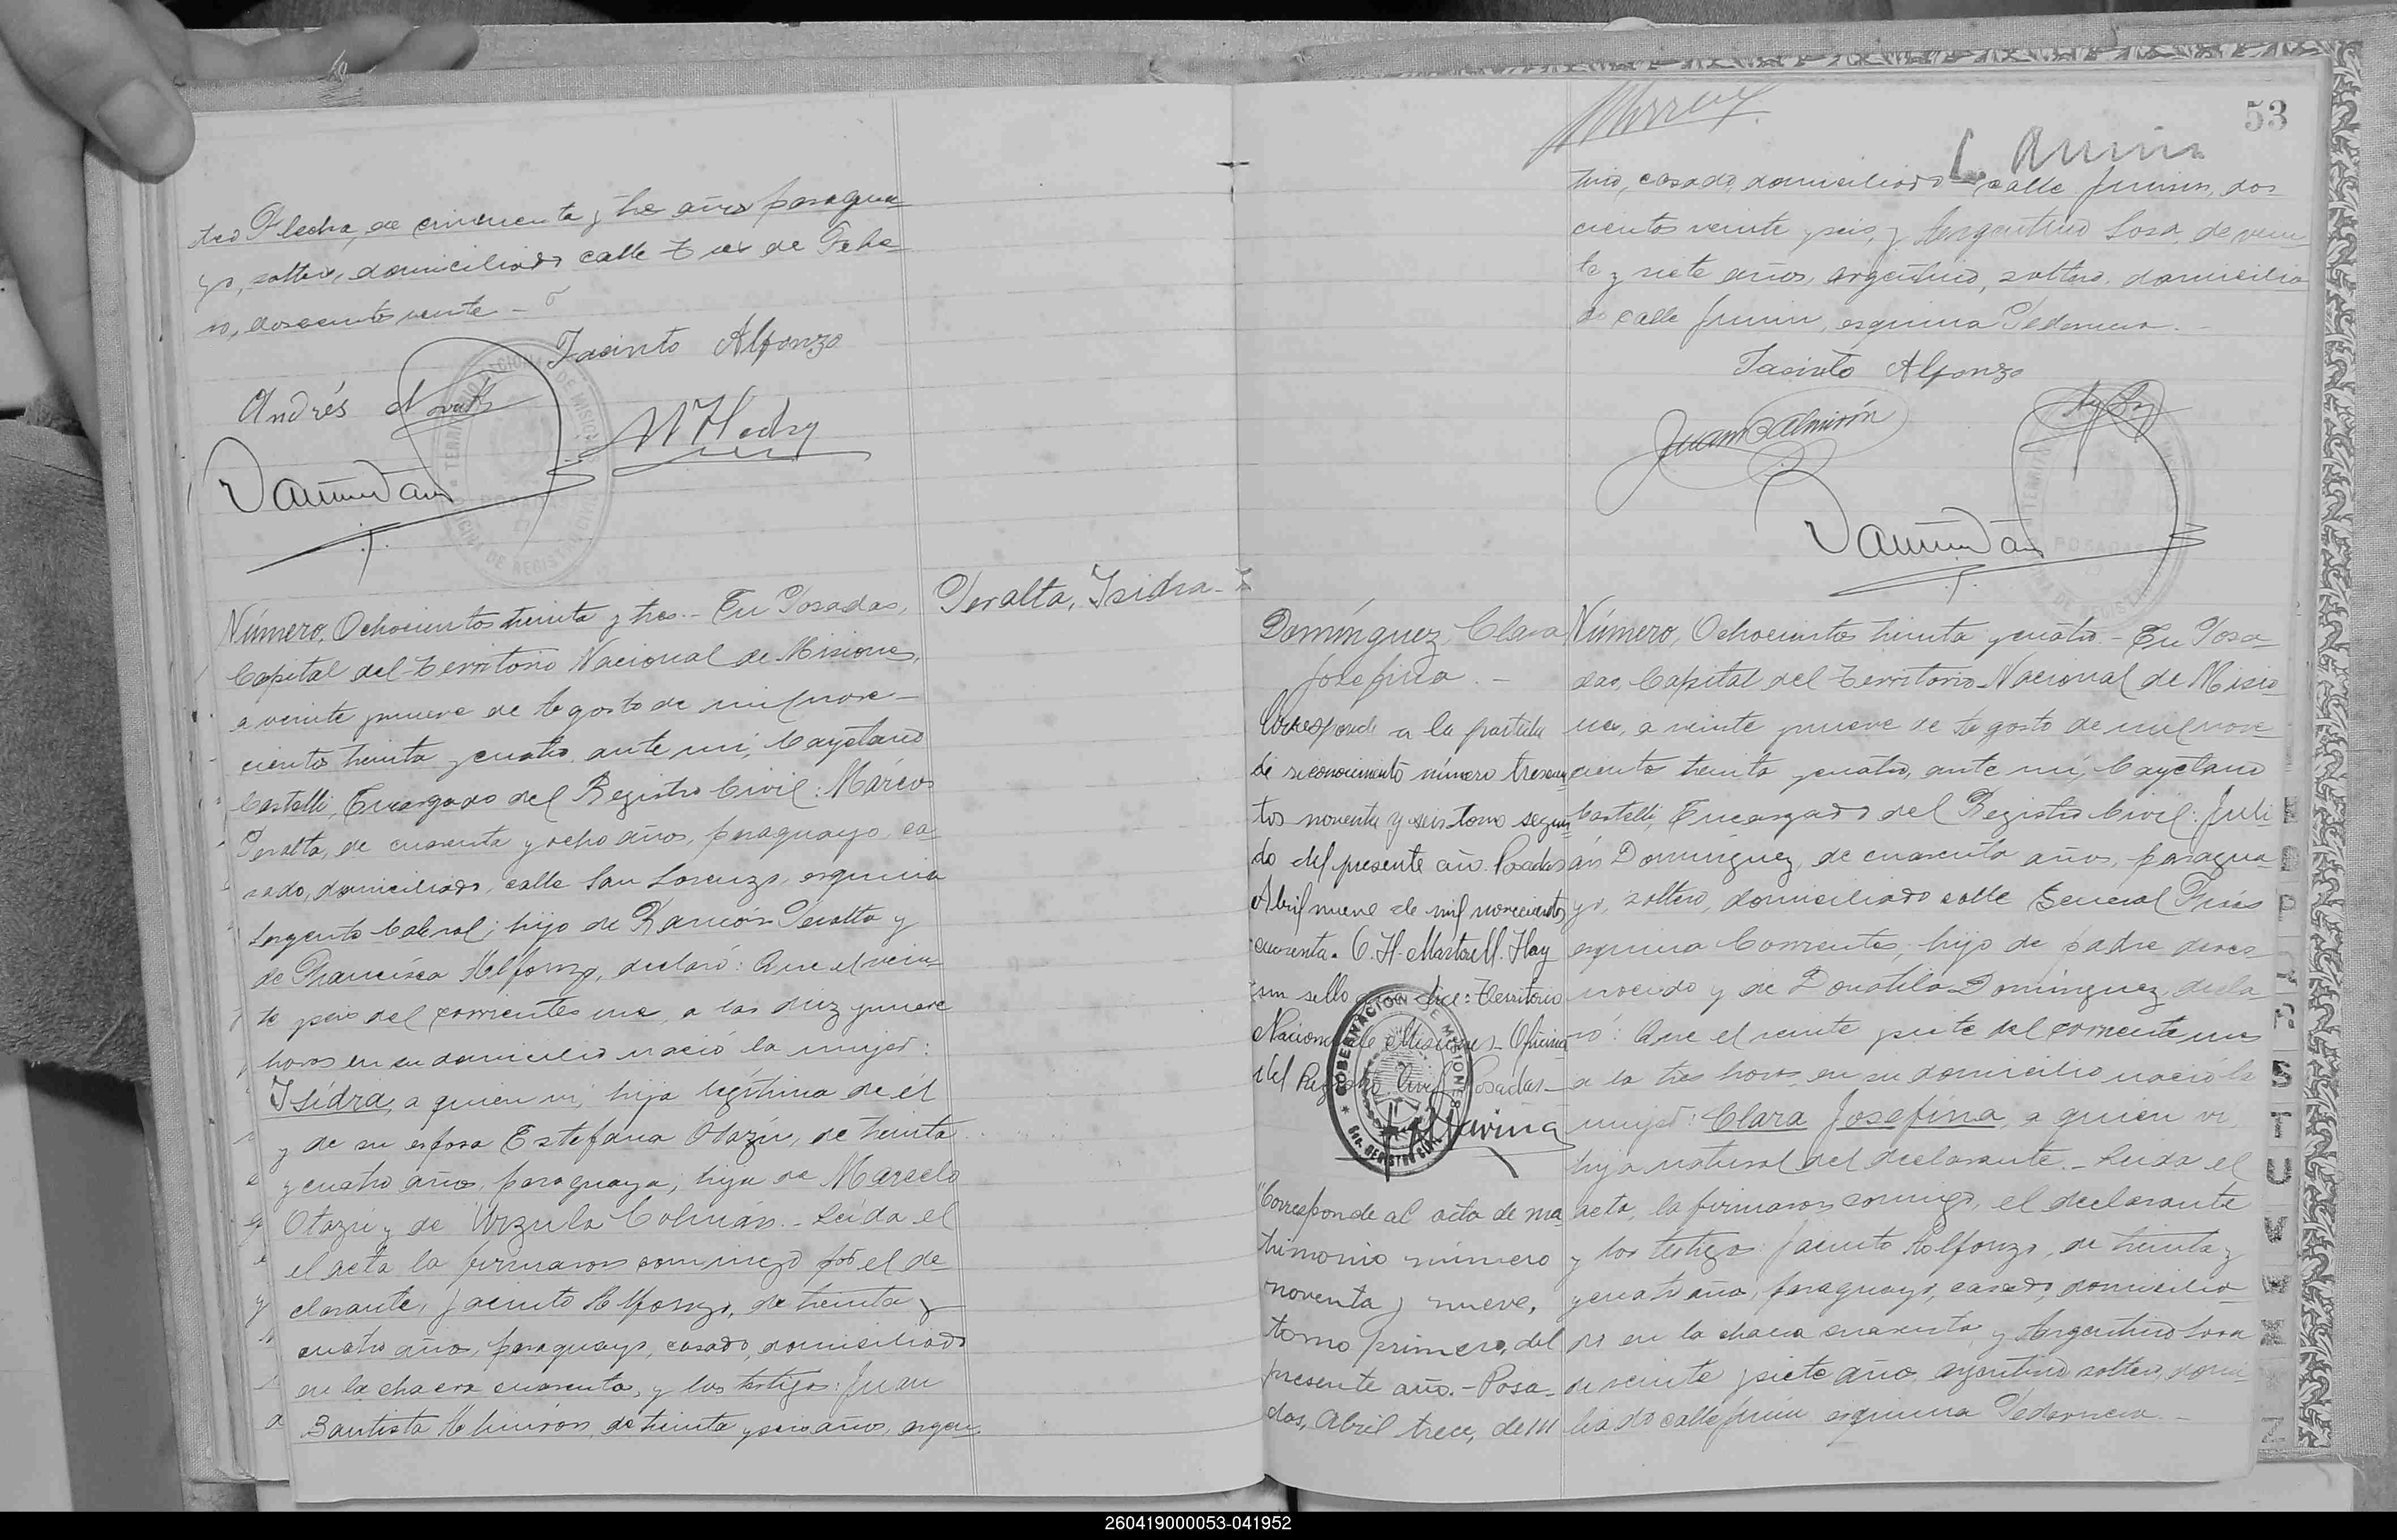 Flecha, de cincuenta y tres años paragua
yo, soltero, domiciliado calle Tres de Febre
ro, doscientos veinte -
Jacinto Alfonzo
Andrés
Número, Ochocientos treinta y tres.- En Posadas,
Capital del Territorio Nacional de Misiones,
a veinte y nueve de Agosto de mil nove-
cientos treinta y cuatro, ante mí, Cayetano
Castelli, Encargado del Registro Civil: Márcos
Peralta, de cuarenta y ocho años, paraguayo, ca
sado, domiciliado, calle San Lorenzo, esquina
Sargento Cabral; hijo de Ramón Peralta y
de Francisca Alfonzo, declaró: Que el vein-
te y seis del corrientes mes, a las diez y nueve
horas en su domicilio nació la mujer:
Isidra, a quien vi, hija legítima de él
y de su esposa Estefana Otazú, de treinta
y cuatro años, paraguaya, hija de Marcelo
Otazú y de Urzula Colmán.- Leída el
el acta la firmaron conmigo por el de
clarante, Jacinto Alfonzo, de treinta y
cuatro años, paraguayo, casado, domiciliado
en la chacra cuarenta, y los testigos: Juan
Bautista Almirón, de treinta y seis años, argen-
Peralta, Isidra.-
53
tino, casado, domiciliado calle Junin, dos
cientos veinte y seis, y Argentino Sosa, de vein
te y siete años, argentino, soltero, domicilia
do calle Junin, esquina Pedernera.-
Jacinto Alfonzo
Juan B Almirón
Domínguez, Clara
Josefina.-
Corresponde a la partida
de reconocimiento número trescien
tos noventa y seis tomo segun
do del presente año. Posadas
Abril nueve de mil novecientos
cuarenta. C. H. Martorell. Hay
un sello que dice: Territorio
Nacional de Misiones - Oficina
del Registro Civil Posadas-
GOBERNACION DE MISIONES
REGISTRO CIVIL
"Corresponde al acta de ma
trimonio número
noventa y nueve,
tomo primero, del
presente año.- Posa-
das, Abril trece, de 1941
Número, Ochocientos treinta y cuatro.- En Posa-
das, Capital del Territorio Nacional de Misio
nes, a veinte y nueve de Agosto de mil nove
cientos treinta y cuatro, ante mí, Cayetano
Castelli, Encargado del Registro Civil: Juli
án Domínguez, de cuarenta años, paragua-
yo, soltero, domiciliado calle General Frías
esquina Corrientes, hijo de padre desco
nocido y de Donatila Domínguez, decla
ró: Que el veinte y siete del corriente mes
a las tres horas, en su domicilio nació la
mujer: Clara Josefina, a quien vi,
hija natural del declarante.- Leída el
acta, la firmaron conmigo, el declarante
y los testigos: Jacinto Alfonzo, de treinta y
y cuatro años, paraguayo, casado, domicilia-
do en la chacra cuarenta, y Argentino Sosa
de veinte y siete años, argentino soltero, domi
liado calle Junin esquina Pedernera.-
260419000053-041952